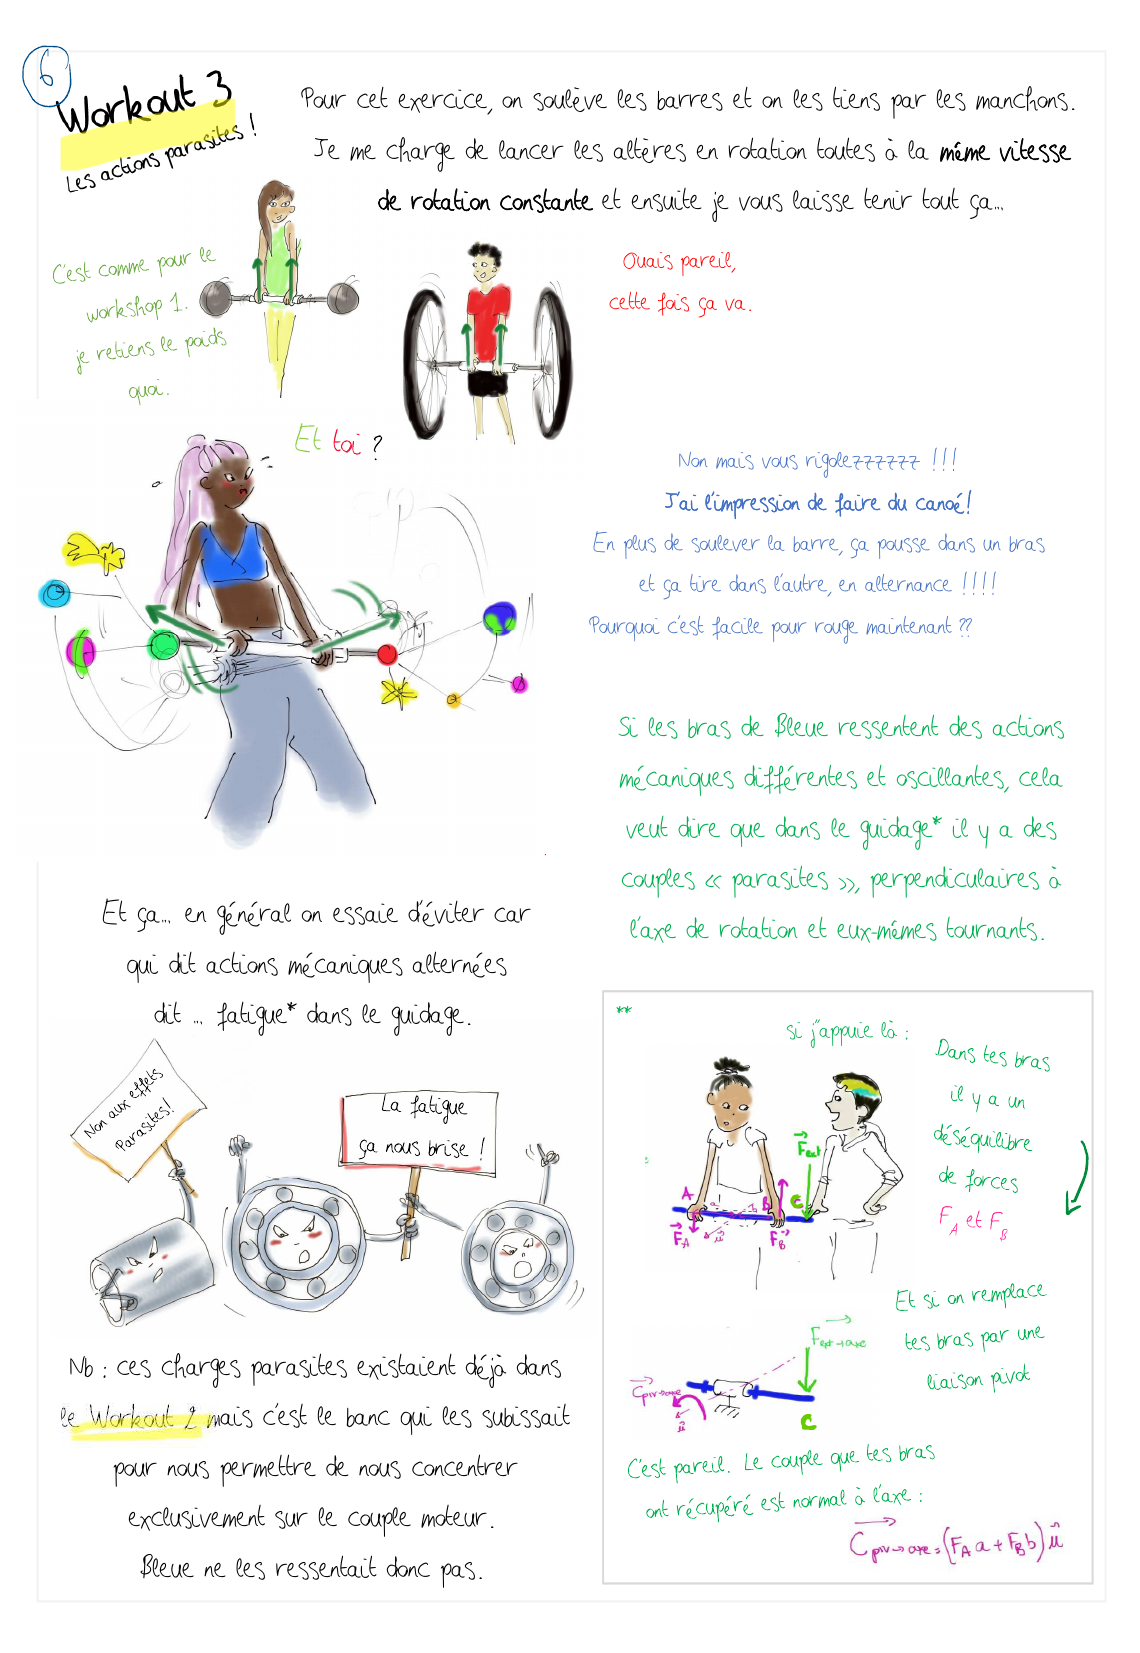 6
Workout 3
Les actions parasites !
Pour cet exercice, on soulève les barres et on les tiens par les manchons.
Je me charge de lancer les altères en rotation toutes à la même vitesse
de rotation constante et ensuite je vous laisse tenir tout ça...
C'est comme pour le
workshop 1.
je retiens le poids
quoi.
Ouais pareil,
cette fois ça va.
Et toi ?
Non mais vous rigolezzzzzzz !!!
J'ai l'impression de faire du canoé!
En plus de soulever la barre, ça pousse dans un bras
et ça tire dans l'autre, en alternance !!!!
Pourquoi c'est facile pour rouge maintenant ??
Si les bras de Bleue ressentent des actions
mécaniques différentes et oscillantes, cela
veut dire que dans le guidage* il y a des
couples « parasites », perpendiculaires à
l'axe de rotation et eux-mêmes tournants.
Et ça... en général on essaie d'éviter car
qui dit actions mécaniques alternées
dit ... fatigue* dans le guidage.
Non aux effets
Parasites!
La fatigue
ça nous brise !
Nb : ces charges parasites existaient déjà dans
le Workout 2 mais c'est le banc qui les subissait
pour nous permettre de nous concentrer
exclusivement sur le couple moteur.
Bleue ne les ressentait donc pas.
**
si j'appuie là :
Dans tes bras
il y a un
déséquilibre
de forces
F_A et F_B
F_ext
A
a
b
B
C
F_A
û
F_B
Et si on remplace
tes bras par une
liaison pivot
F_ext→axe
C_piv→axe
û
C
C'est pareil. Le couple que tes bras
ont récupéré est normal à l'axe :
C_piv→axe = (F_A a + F_B b) û